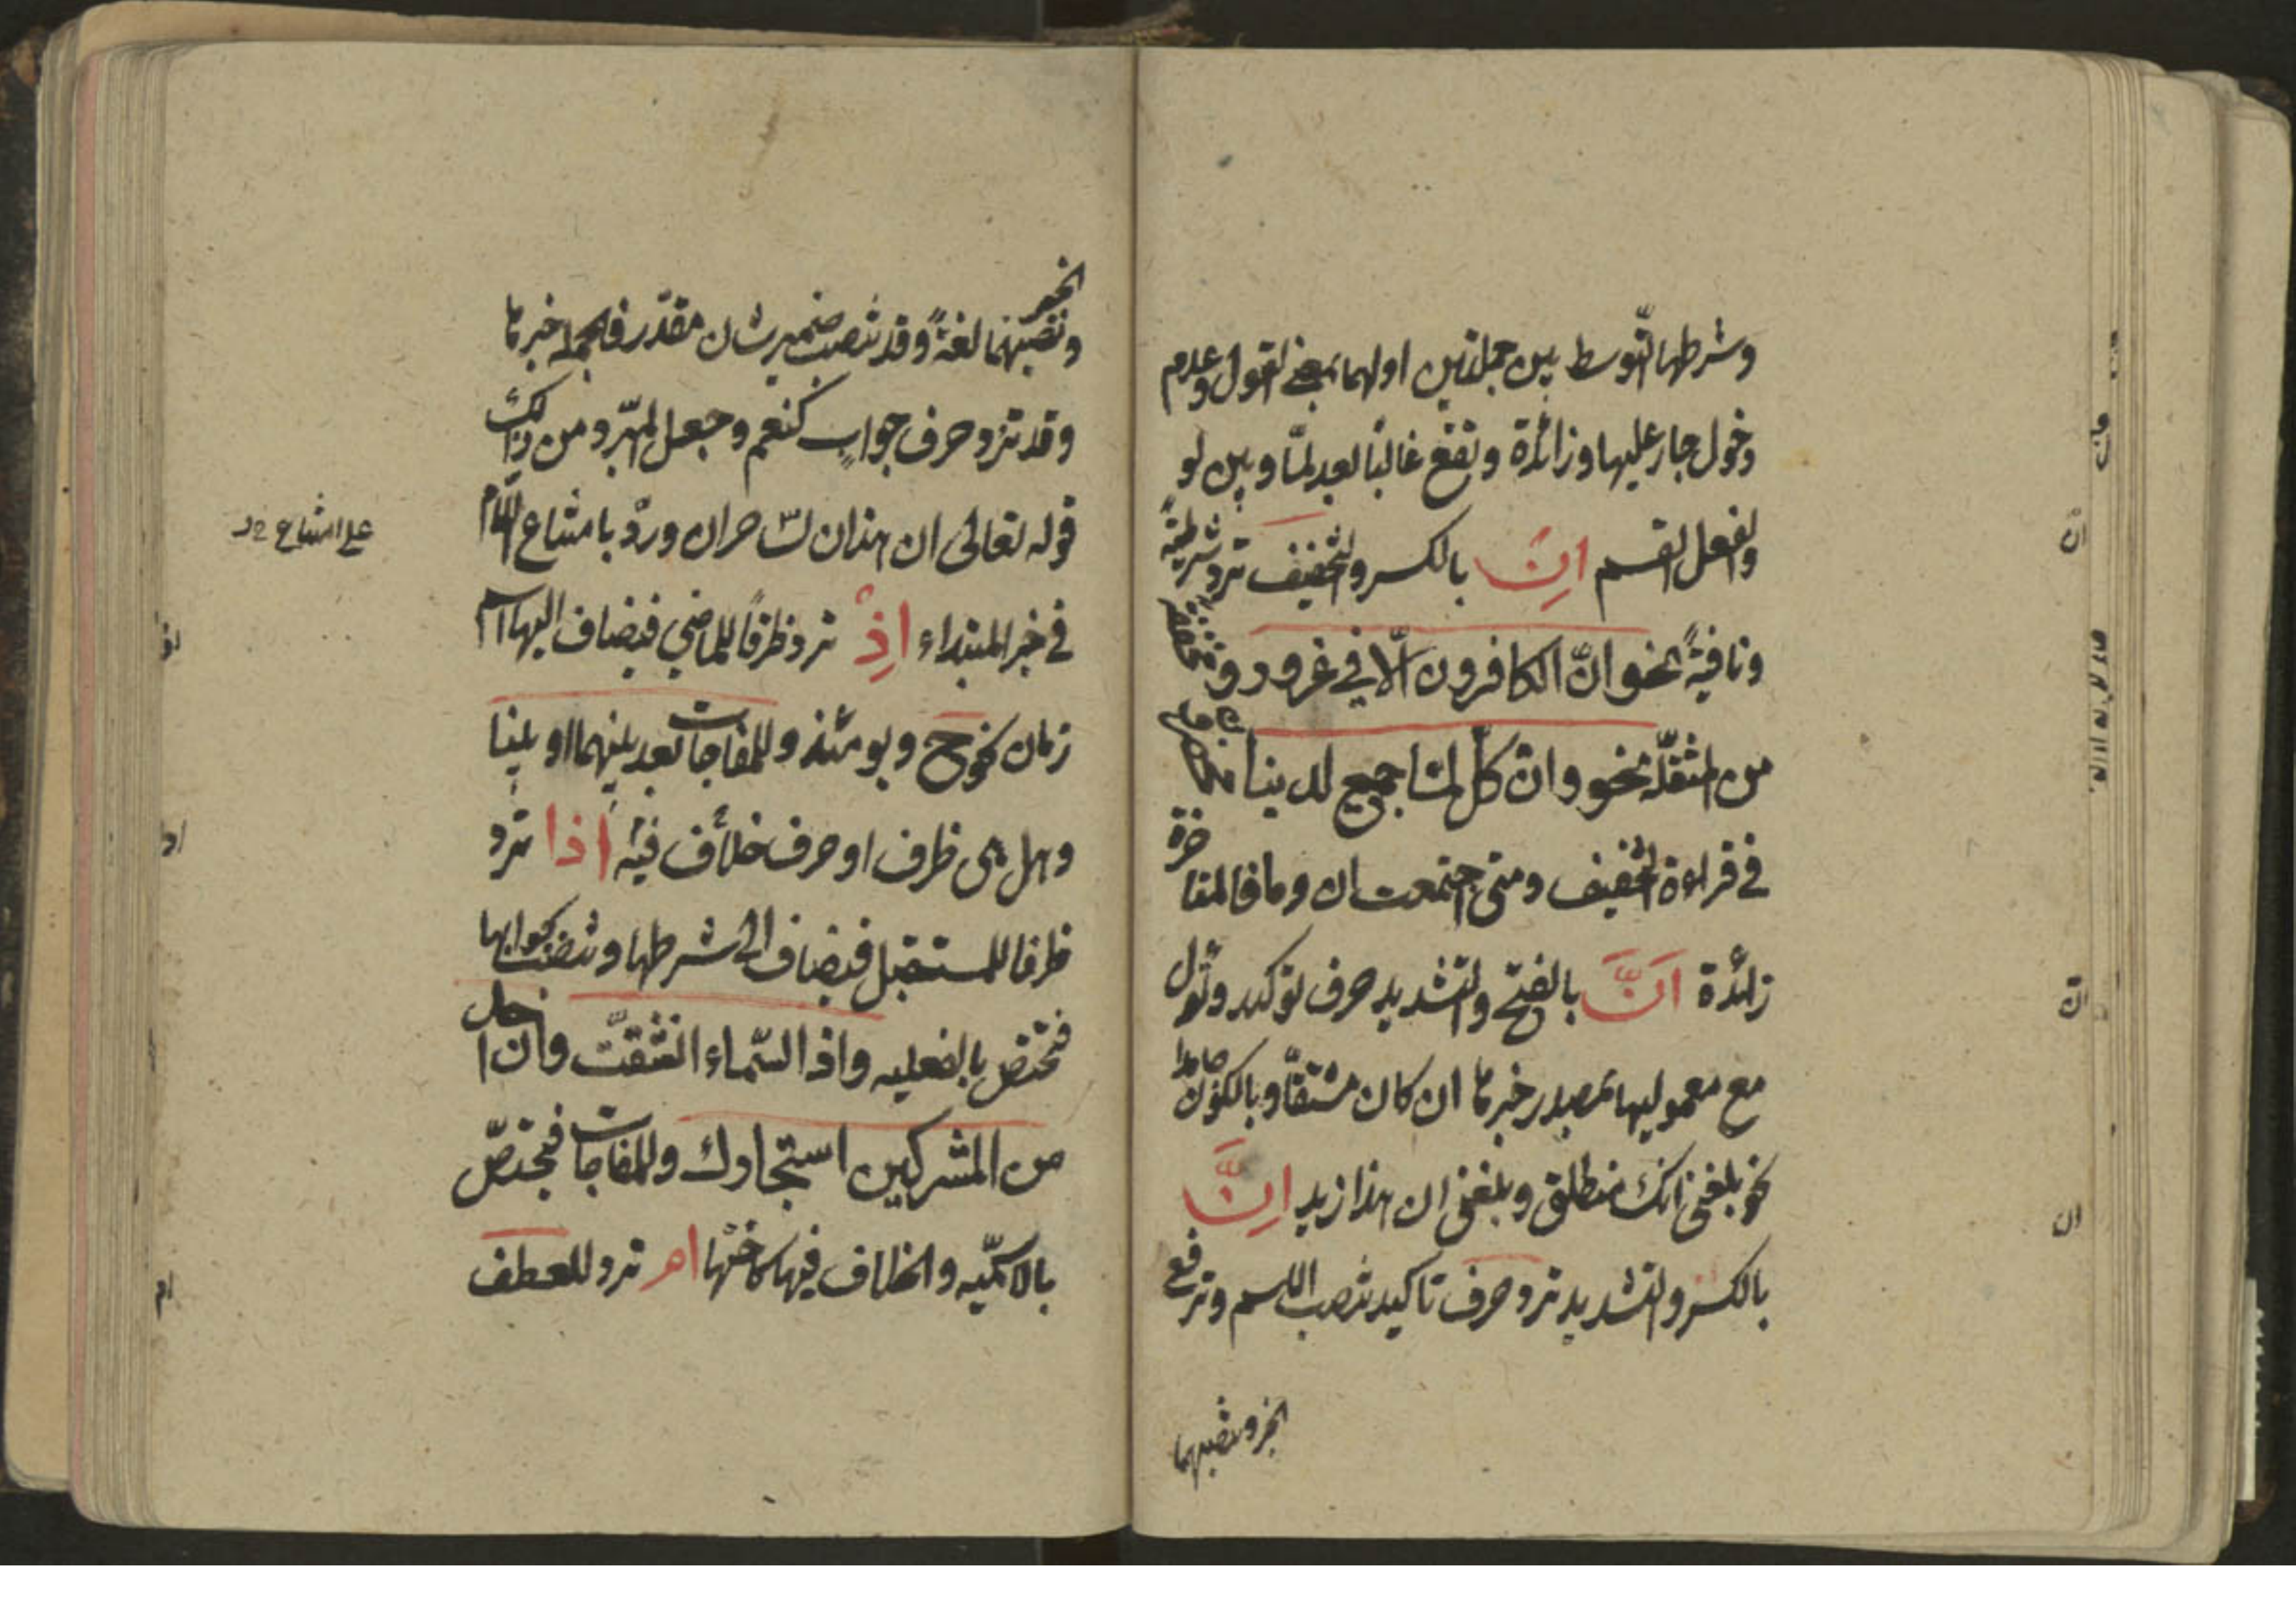 وشرطها التّوسط بين جملتين اولهما بمعنى القول وعدم
دخول جار عليها وزائدة وتقع غالبًا بعد لمّا وبين لو
وفعل القسم اِن بالكسر والتخفيف ترد شرطيةً
ونافيةً نحو انّ الكافرون الّا في غرور ومخففة
من المثقلّة نحو وانْ كلّ لمّا جميع لدينا محضرون
في قراءة التخفيف ومتى اجتمعت ان وما فالمتأخرة
زائدة اَنَّ بالفتح والتشديد حرف توكيد وتؤل
مع معموليها بمصدر خبرها ان كان مشتقّا وبالكون ان جامدا
نحو بلغني انك منطلق وبلغني ان هذا زيد اِنَّ
بالكسر والتشديد ترد حرف تاكيد تنصب الاسم وترفع
الخبر ونصبهما
انّ
انّ
ان
الخبر
ونصبهما لغةً وقد تنصب ضمير شان مقدّر فالجملة خبرها
وقد ترد حرف جواب كنعم وجعل المبّرد من ذلك
قوله تعالى ان هذان لساحران وردّ بامتناع اللّام
في خبر المبتداء اِذْ ترد ظرفًا للماضي فيضاف اليها اسم
زمان نحو ح ويومئذ وللمفاجات بعد بينهما او بينا
وهل هى ظرف او حرف خلاف فيه اذا ترد
ظرفا للمستقبل فيضاف الى شرطها وتنصب بجوابها
فتختص بالفعليه واذ السّماء انشقتّ وان احد
من المشركين استجارك وللمفاجات فيختصّ
بالاسمّيه والخلاف فيها كاختها ام ترد للعطف
على امتناع
اذ
اذ
ام